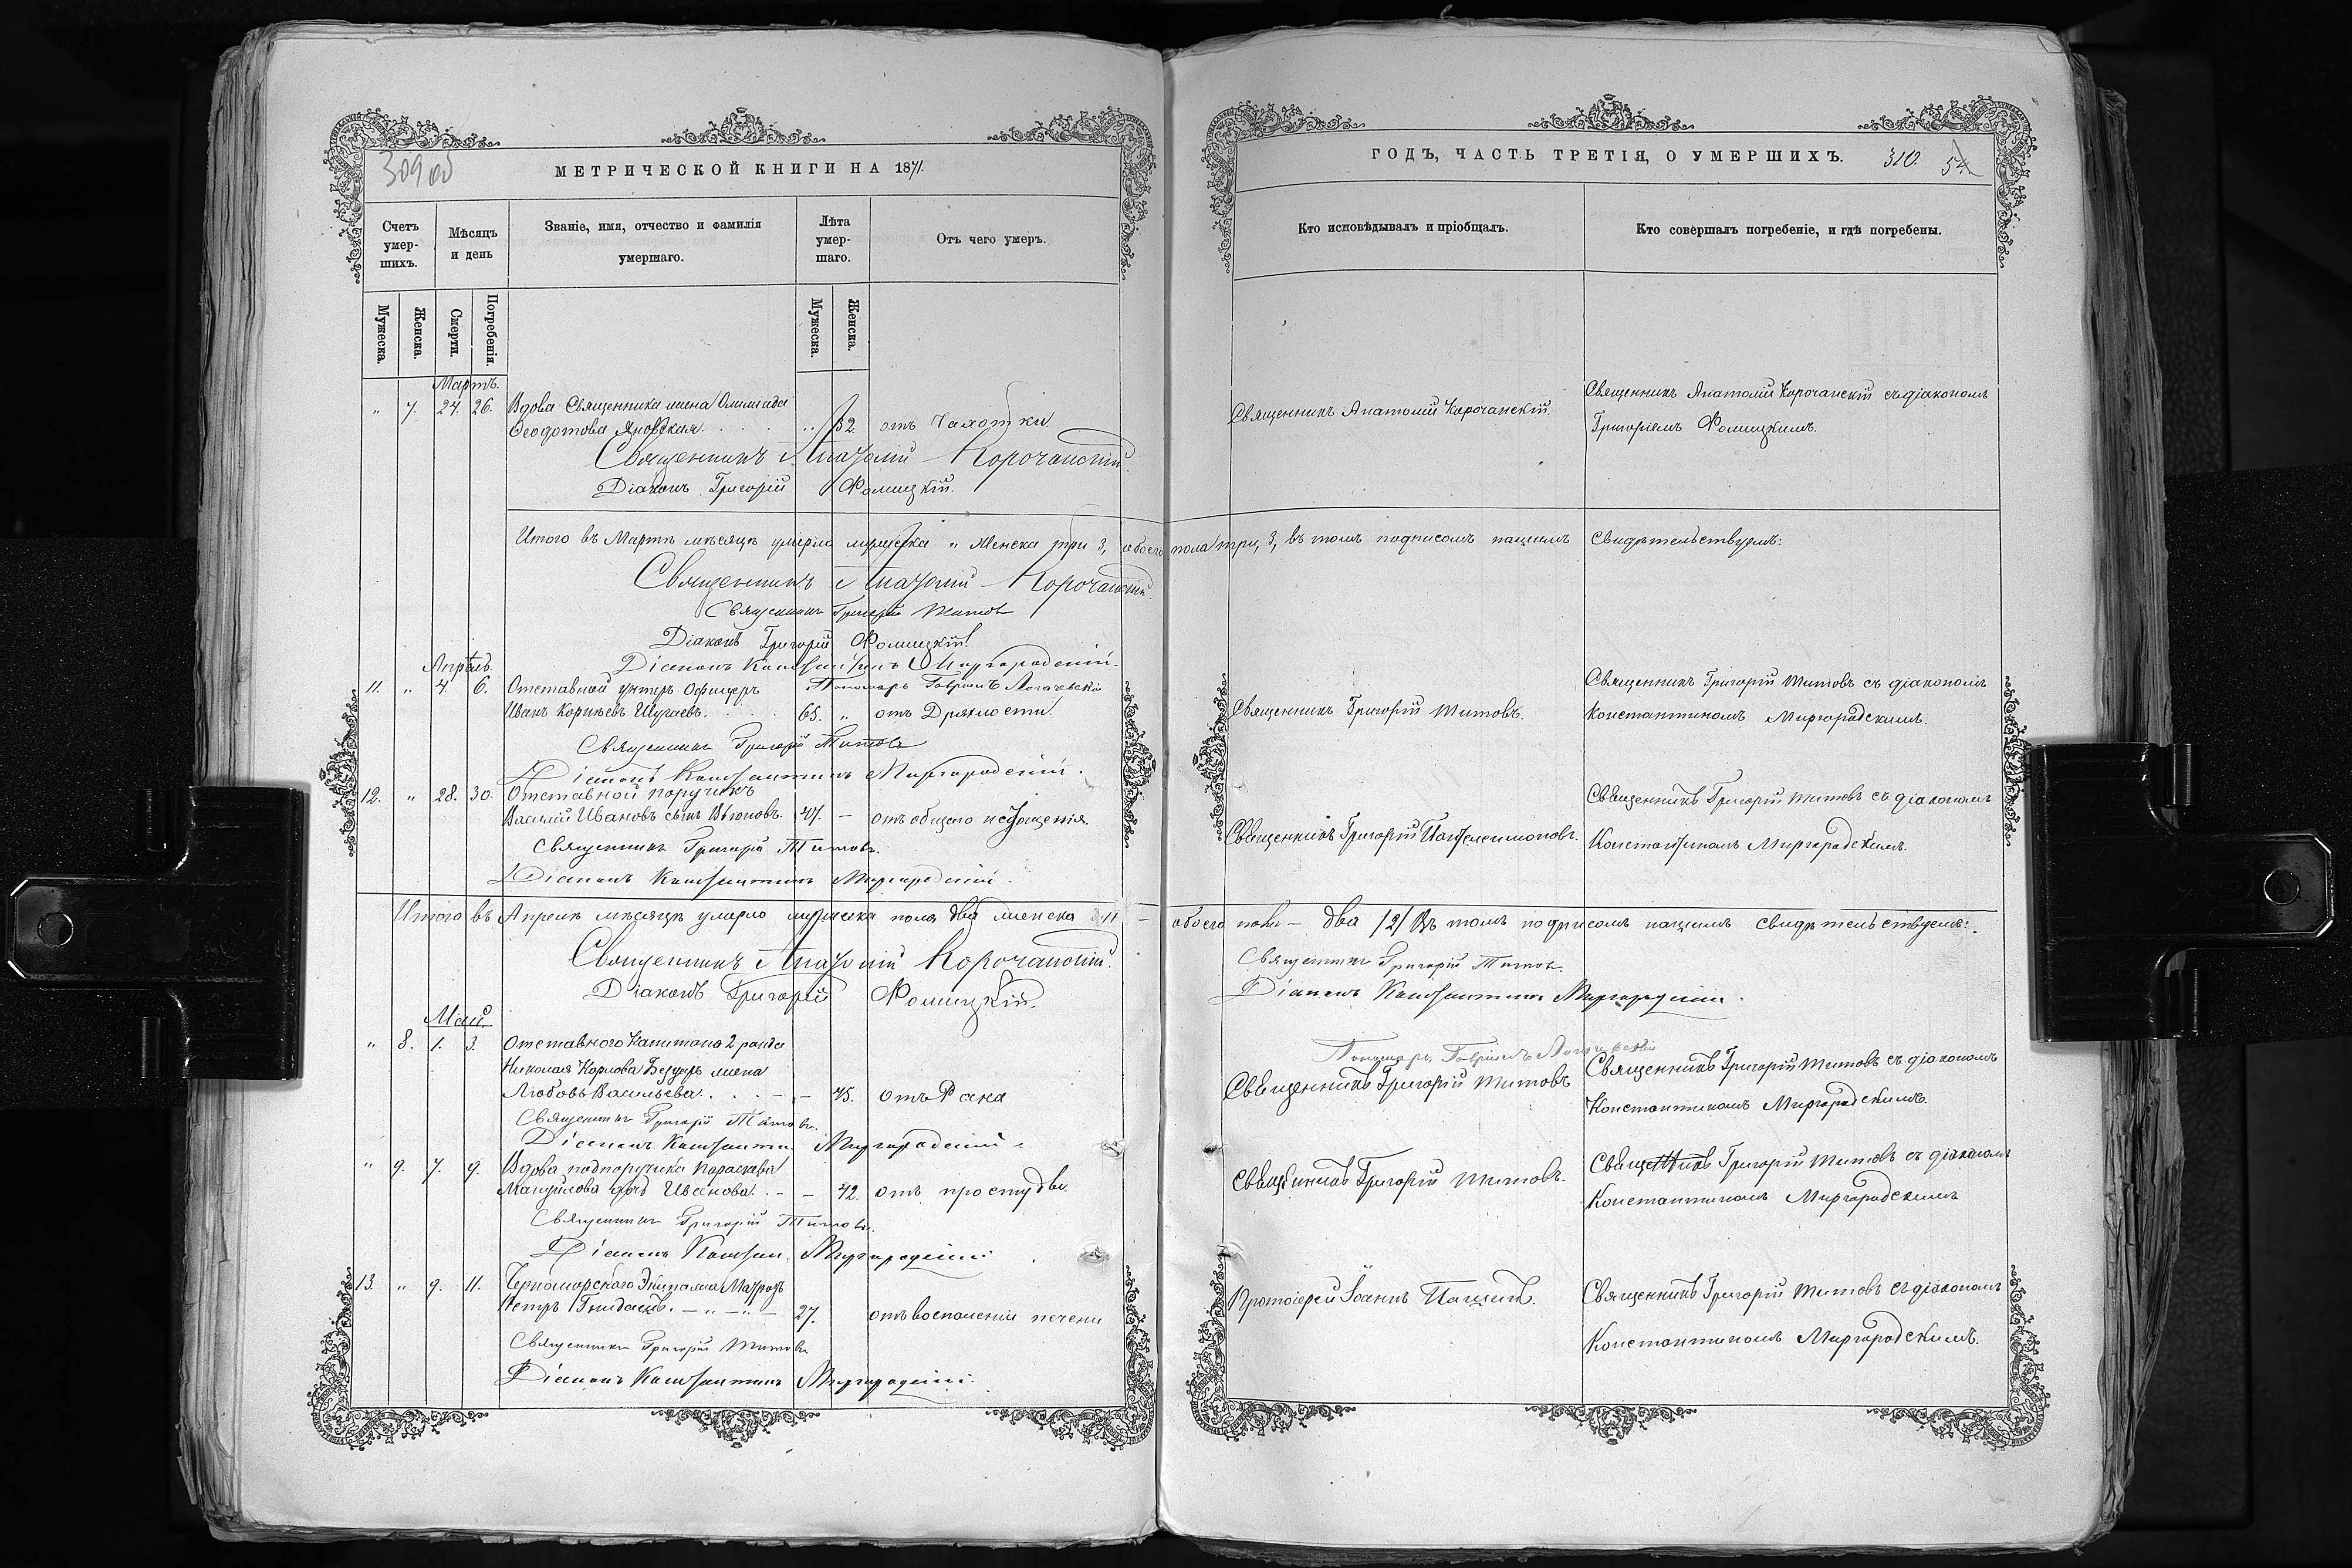 309 об
МЕТРИЧЕСКОЙ КНИГИ НА 1871.
Счетъ умер-шихъ.
Мѣсяцъ и день
Званіе, имя, отчество и фамилія умершаго.
Лѣта умер-шаго.
Отъ чего умеръ.
Мужеска.
Женска.
Смерти.
Погребенія.
Мужеска.
Женска.
Мартъ.
" 7. 24. 26. Вдова Священника жена Олимпіада
Ѳеодотова Яновская. 32 отъ Чахотки
Священникъ Анатолій Корочанскій.
Діаконъ Григорій Фомицкій.
Итого въ Мартѣ мѣсяцѣ умерло мужеска " Женска три 3, обоего пола три, 3, въ томъ подписомъ нашимъ Свидѣтельствуемъ:
Священникъ Анатолій Корочанскій.
Священникъ Григорій Титовъ
Діаконъ Григорій Фомицкій.
Апрѣль. Діаконъ Константинъ Миргородскій.
11. " 4. 6. Отставной унтеръ Офицеръ Пономарь Гавріилъ
Иванъ Корнѣевъ Шугаевъ. 65. " отъ Дряхлости
Священникъ Григорій Титовъ
Діаконъ Константинъ Миргородскій.
12. " 28. 30. Отставной поручикъ
Василій Ивановъ сынъ Вьюновъ. 47. – отъ общаго истощенія.
Священникъ Григорій Титовъ.
Діаконъ Константинъ Миргородскій.
Итого въ Апрелѣ мѣсяцѣ умерло мужеска пола два женска " – обоего пола – два /2/ Въ томъ подписомъ нашимъ свидѣтельствуемъ:
Священникъ Анатолій Корочанскій.
Діаконъ Григорій Фомицкій.
Май.
" 8. 1. 3. Отставного Капитана 2 ранга
Николая Карлова жена
Любовь Васильева. – – 45. отъ Рака
Священникъ Григорій Титовъ.
Діаконъ Констант. Миргородскій
" 9. 7. 9. Вдова подпоручика Параскева
Мануйлова дочь Иванова. – – 42. отъ простуды.
Священникъ Григорій Титовъ.
Діаконъ Констан. Миргородскій
13. " 9. 11. Черноморского Экипажа Матрозъ
Петръ – " – " – 27. отъ воспаленія печени
Священникъ Григорій Титовъ
Діаконъ Константинъ Миргородскій.
ГОДЪ, ЧАСТЬ ТРЕТІЯ, О УМЕРШИХЪ. 310. 54
Кто исповѣдывалъ и пріобщалъ.
Кто совершалъ погребеніе, и гдѣ погребены.
Священникъ Анатолій Корочанскій.
Священникъ Анатолій Корочанскій съ діакономъ
Григоріемъ Фомицкимъ.
Священникъ Григорій Титовъ.
Священникъ Григорій Титовъ съ діакономъ
Константиномъ Миргородскимъ.
Священникъ Григорій Пантелеимоновъ.
Священникъ Григорій Титовъ съ діакономъ
Константиномъ Миргородскимъ.
Священникъ Григорій Титовъ.
Діаконъ Константинъ Миргородскій.
Пономарь Гавріилъ
Священникъ Григорій Титовъ
Священникъ Григорій Титовъ съ діакономъ
Константиномъ Миргородскимъ.
Священникъ Григорій Титовъ.
Священникъ Григорій Титовъ съ діакономъ
Константиномъ Миргородскимъ
Протоіерей Іоаннъ
Священникъ Григорій Титовъ съ діакономъ
Константиномъ Миргородскимъ.